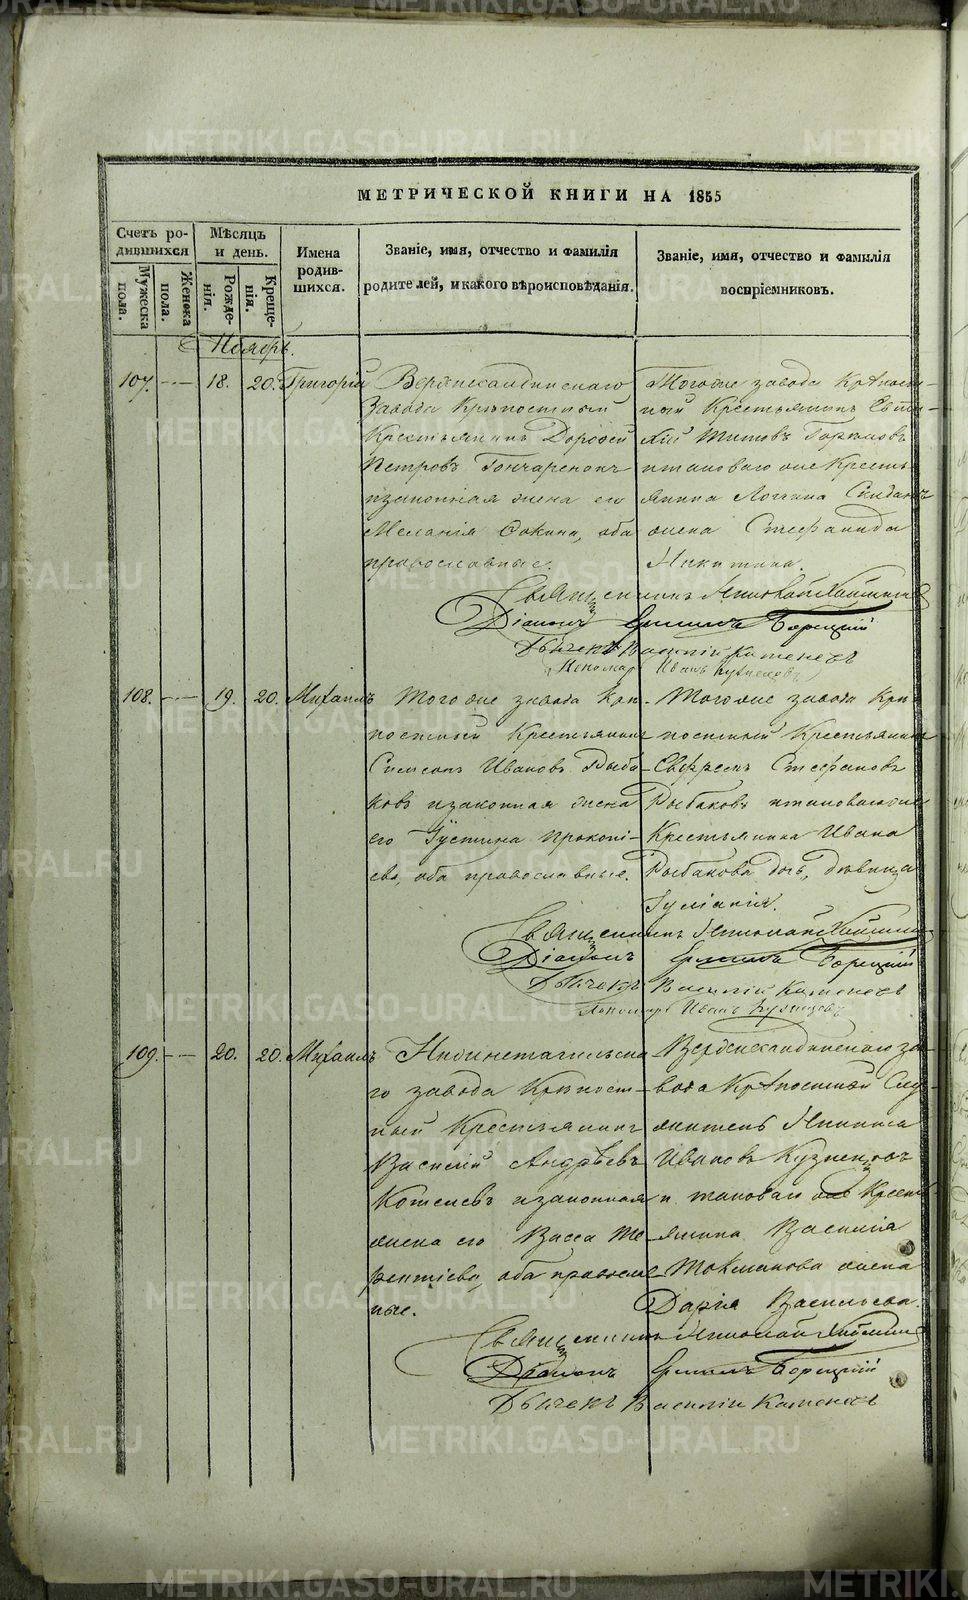 METRIKI.GASO-URAL.RU
МЕТРИЧЕСКОЙ КНИГИ НА 1855
Счетъ родившихся
Мѣсяцъ и день.
Имена родившихся.
Званіе, имя, отчество и фамилія родителей, и какого вѣроисповѣданія.
Званіе, имя, отчество и фамилія воспріемниковъ.
Мужеска пола.
Женска пола.
Рожденія.
Крещенія.
Ноябрь.
107. 18. 20. Григорій
Верхнесалдинскаго
завода Крѣпостный
Крестьянинъ Дорофей
Петровъ Гончаренокъ
и законная жена его
Меланія Фокина, оба
православные.
Тогоже завода Крѣпост-
ный Крестьянинъ
Титовъ
и таковаго же Кресть-
янина
жена Стефанида
Никитина.
Священникъ Николай
Діаконъ Борецкій
Дьячекъ Василій
Пономарь Иванъ Кузнецовъ
108. 19. 20. Михаилъ
Тогоже завода Крѣ-
постный Крестьянинъ
Симеонъ Ивановъ Рыба-
ковъ и законная жена
его Іустина Прокопі-
ева, оба православные.
Тогоже завода Крѣ-
постный Крестьянинъ
Ефремъ Стефановъ
Рыбаковъ и таковаго же
Крестьянина Ивана
Рыбакова дочь, дѣвица
Іуліанія.
Священникъ Николай
Діаконъ Борецкій
Дьячекъ Василій
Пономарь Иванъ Кузнецовъ
109. 20. 20. Михаилъ
Нижнетагильска-
го завода Крѣпост-
ный Крестьянинъ
Василій Андреевъ
Котелевъ и законная
жена его Васса Те-
рентіева, оба православ-
ные.
Верхнесалдинскаго за-
вода Крѣпостный Слу-
житель Никита
Ивановъ Кузнецовъ
и таковаго же Кресть-
янина Василія
Токманова жена
Дарія Васильева.
Священникъ Николай
Діаконъ Борецкій
Дьячекъ Василій